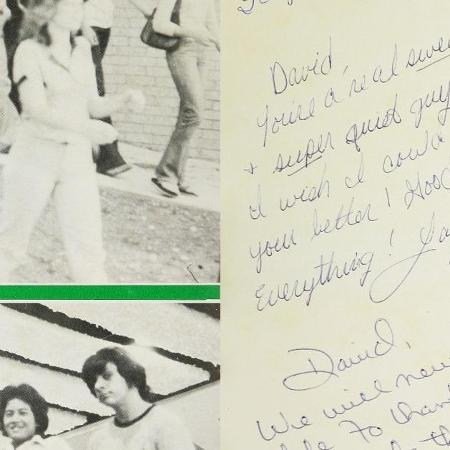 David
You're a real sweet
+ super quiet guy
I wish I could
your better! Good
Everything!
David,
We will never
to thank